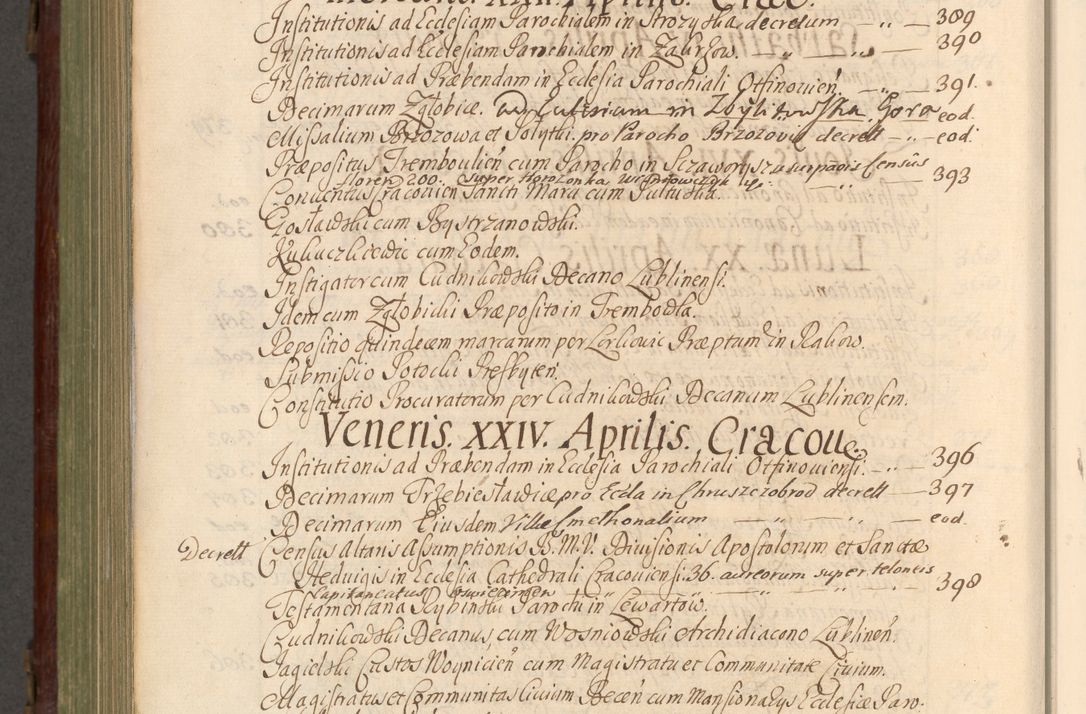 Institutionis ad Ecclesiam Parochialem in Strozyska decretum — „ — 389
Institutionis ad Ecclesiam Parochialem in Zakrzow. „ — 390
Institutionis ad Præbendam in Ecclesia Parochiali Otfinovień. — „ — 391.
Decimarum Zglobice. ad Ecclesiam in Zbylitowska Gora eod.
Missalium Brzozowa et Polytki. pro Parocho Brzozovie decrett — „ — eod.
Præpositus Tremboulień cum Parocho in Sczaworysz usurpationis Censûs
floren 200. super Horozonka, 393
Conventus Cracovien Sancti Marci cum Pultuska.
Gosławski cum Bystrzanowski.
cum Eodem.
Instigator cum Cudnikowski Decano Lublinensi.
Idem cum Zglobicki Præposito in Trembowla.
Repositio quindecim marcarum per Præptum in Rakow.
Submissio Potocki Presbyteri.
Constitutio Procuratorum per Cudnikowski Decanum Lublinensem.
Veneris. XXIV. Aprilis. Cracoviæ.
Institutionis ad Præbendam in Ecclesia Parochiali Otfinoviensi. — „ — 396
Decimarum Trzebiesławice pro Eccla in Chruszczobrod decrett — 397
Decimarum Eiusdem Villæ Cmethonalium — „ — „ — eod.
Decrett Census Altaris Assumptionis B. M. V. Divisionis Apostolorum et Sanctæ
Hedvigis in Ecclesia Cathedrali Cracoviensi. 36. aureorum super teloneis
Capitaneatus Oswiecimen — „ — 398
Testamentana Rybinski Parochi in Lewartow.
Cudnikowski Decanus, cum Wosniowski Archidiacono Lublineń.
Jagielski Custos Woynicień cum Magistratu et Communitate Civium.
Magistratus et Communitas Civium Beceń cum Mansionarys Ecclesiæ Paro-